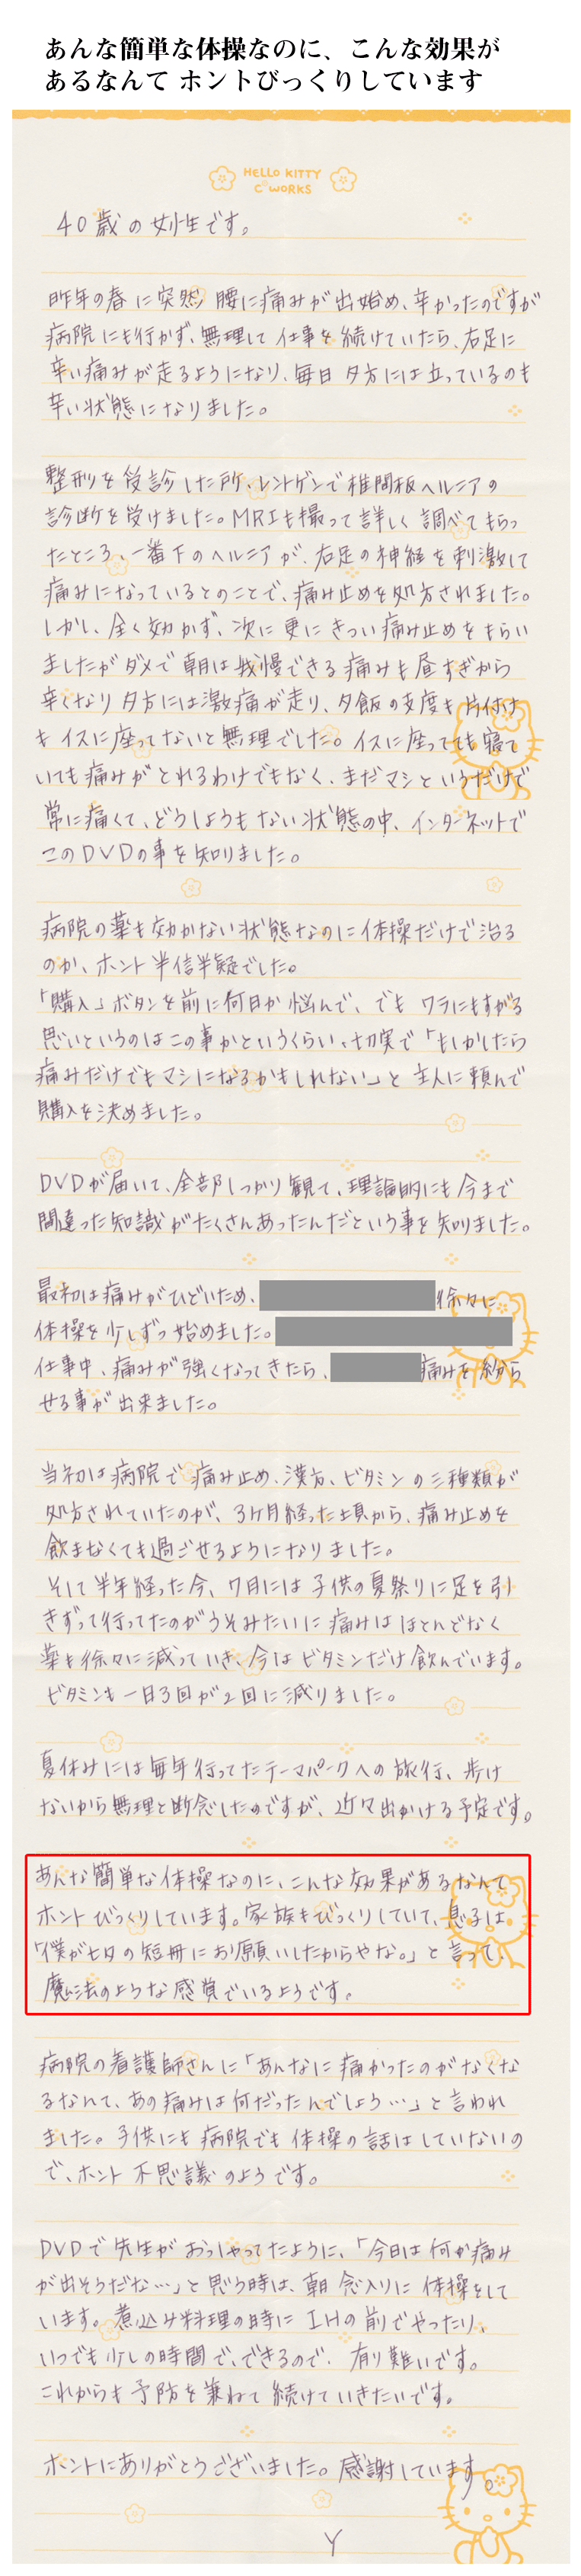 あんな簡単な体操なのに、こんな効果が
あるなんて ホントびっくりしています
HELLO KITTY
C WORKS
40歳の女性です。
昨年の春に突然 腰に痛みが出始め、辛かったのですが
病院にも行かず、無理して仕事を続けていたら、右足に
辛い痛みが走るようになり、毎日 夕方には立っているのも
辛い状態になりました。
整形を受診した所、レントゲンで椎間板ヘルニアの
診断を受けました。MRIも撮って詳しく調べてもらっ
たところ、一番下のヘルニアが、右足の神経を刺激して
痛みになっているとのことで、痛み止めを処方されました。
しかし、全く効かず、次に更にきつい痛み止めをもらい
ましたがダメで朝は我慢できる痛みも昼すぎから
辛くなり夕方には激痛が走り、夕飯の支度も片付け
もイスに座ってないと無理でした。イスに座ってても寝て
いても痛みがとれるわけでもなく、まだマシというだけで
常に痛くて、どうしようもない状態の中、インターネットで
このDVDの事を知りました。
病院の薬も効かない状態なのに体操だけで治る
のか、ホント半信半疑でした。
「購入」ボタンを前に何日か悩んで、でも ワラにもすがる
思いというのはこの事かというくらい、切実で「もしかしたら
痛みだけでもマシになるかもしれない」と 主人に頼んで
購入を決めました。
DVDが届いて、全部しっかり観て、理論的にも今まで
間違った知識がたくさんあったんだという事を知りました。
最初は痛みがひどいため、徐々に
体操を少しずつ始めました。
仕事中、痛みが強くなってきたら、痛みを紛ら
せる事が出来ました。
当初は病院で痛み止め、漢方、ビタミンの三種類が
処方されていたのが、3ケ月経った頃から、痛み止めを
飲まなくても過ごせるようになりました。
そして半年経った今、7月には子供の夏祭りに足を引
きずって行ってたのがうそみたいに痛みはほとんどなく
薬も徐々に減っていき、今はビタミンだけ飲んでいます。
ビタミンも一日3回が2回に減りました。
夏休みには毎年行ってたテーマパークへの旅行、歩け
ないから無理と断念したのですが、近々出かける予定です。
あんな簡単な体操なのに、こんな効果があるなんて
ホントびっくりしています。家族もびっくりしていて、息子は
「僕が七夕の短冊にお願いしたからやな。」と言って、
魔法のような感覚でいるようです。
病院の看護師さんに「あんなに痛かったのがなくな
るなんて、あの痛みは何だったんでしょう…」と言われ
ました。子供にも病院でも体操の話はしていないの
で、ホント不思議のようです。
DVDで先生がおっしゃってたように、「今日は何か痛み
が出そうだな…」と思う時は、朝 念入りに体操をして
います。煮込み料理の時にIHの前でやったり、
いつでも少しの時間で、できるので、有り難いです。
これからも予防を兼ねて続けていきたいです。
ホントにありがとうございました。感謝しています。
Y